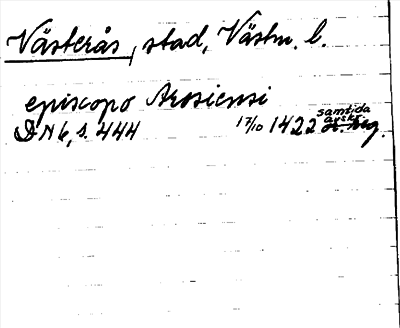 Västerås, stad, Västm. l.
episcopo Arosiensi
DN 6, s. 444 17/10 1422 samtida avskr.